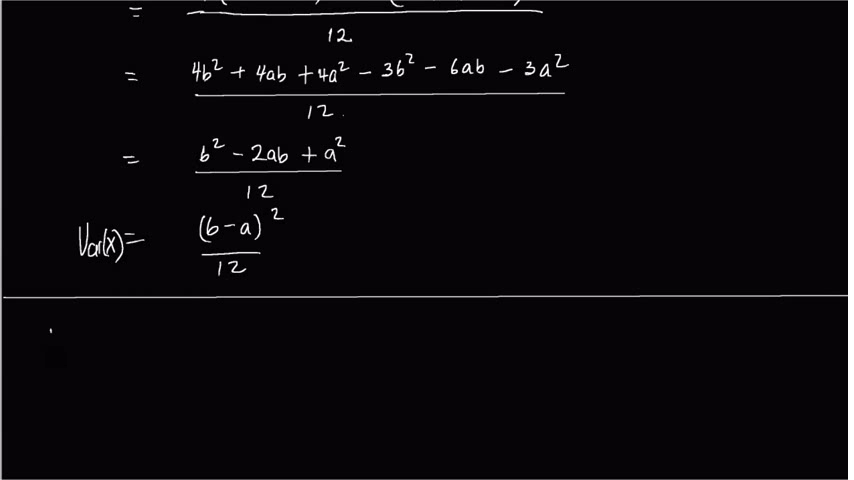 =
12
= 4b² + 4ab + 4a² - 3b² - 6ab - 3a²
12
= b² - 2ab + a²
12
Var(x) = (b-a)²
12